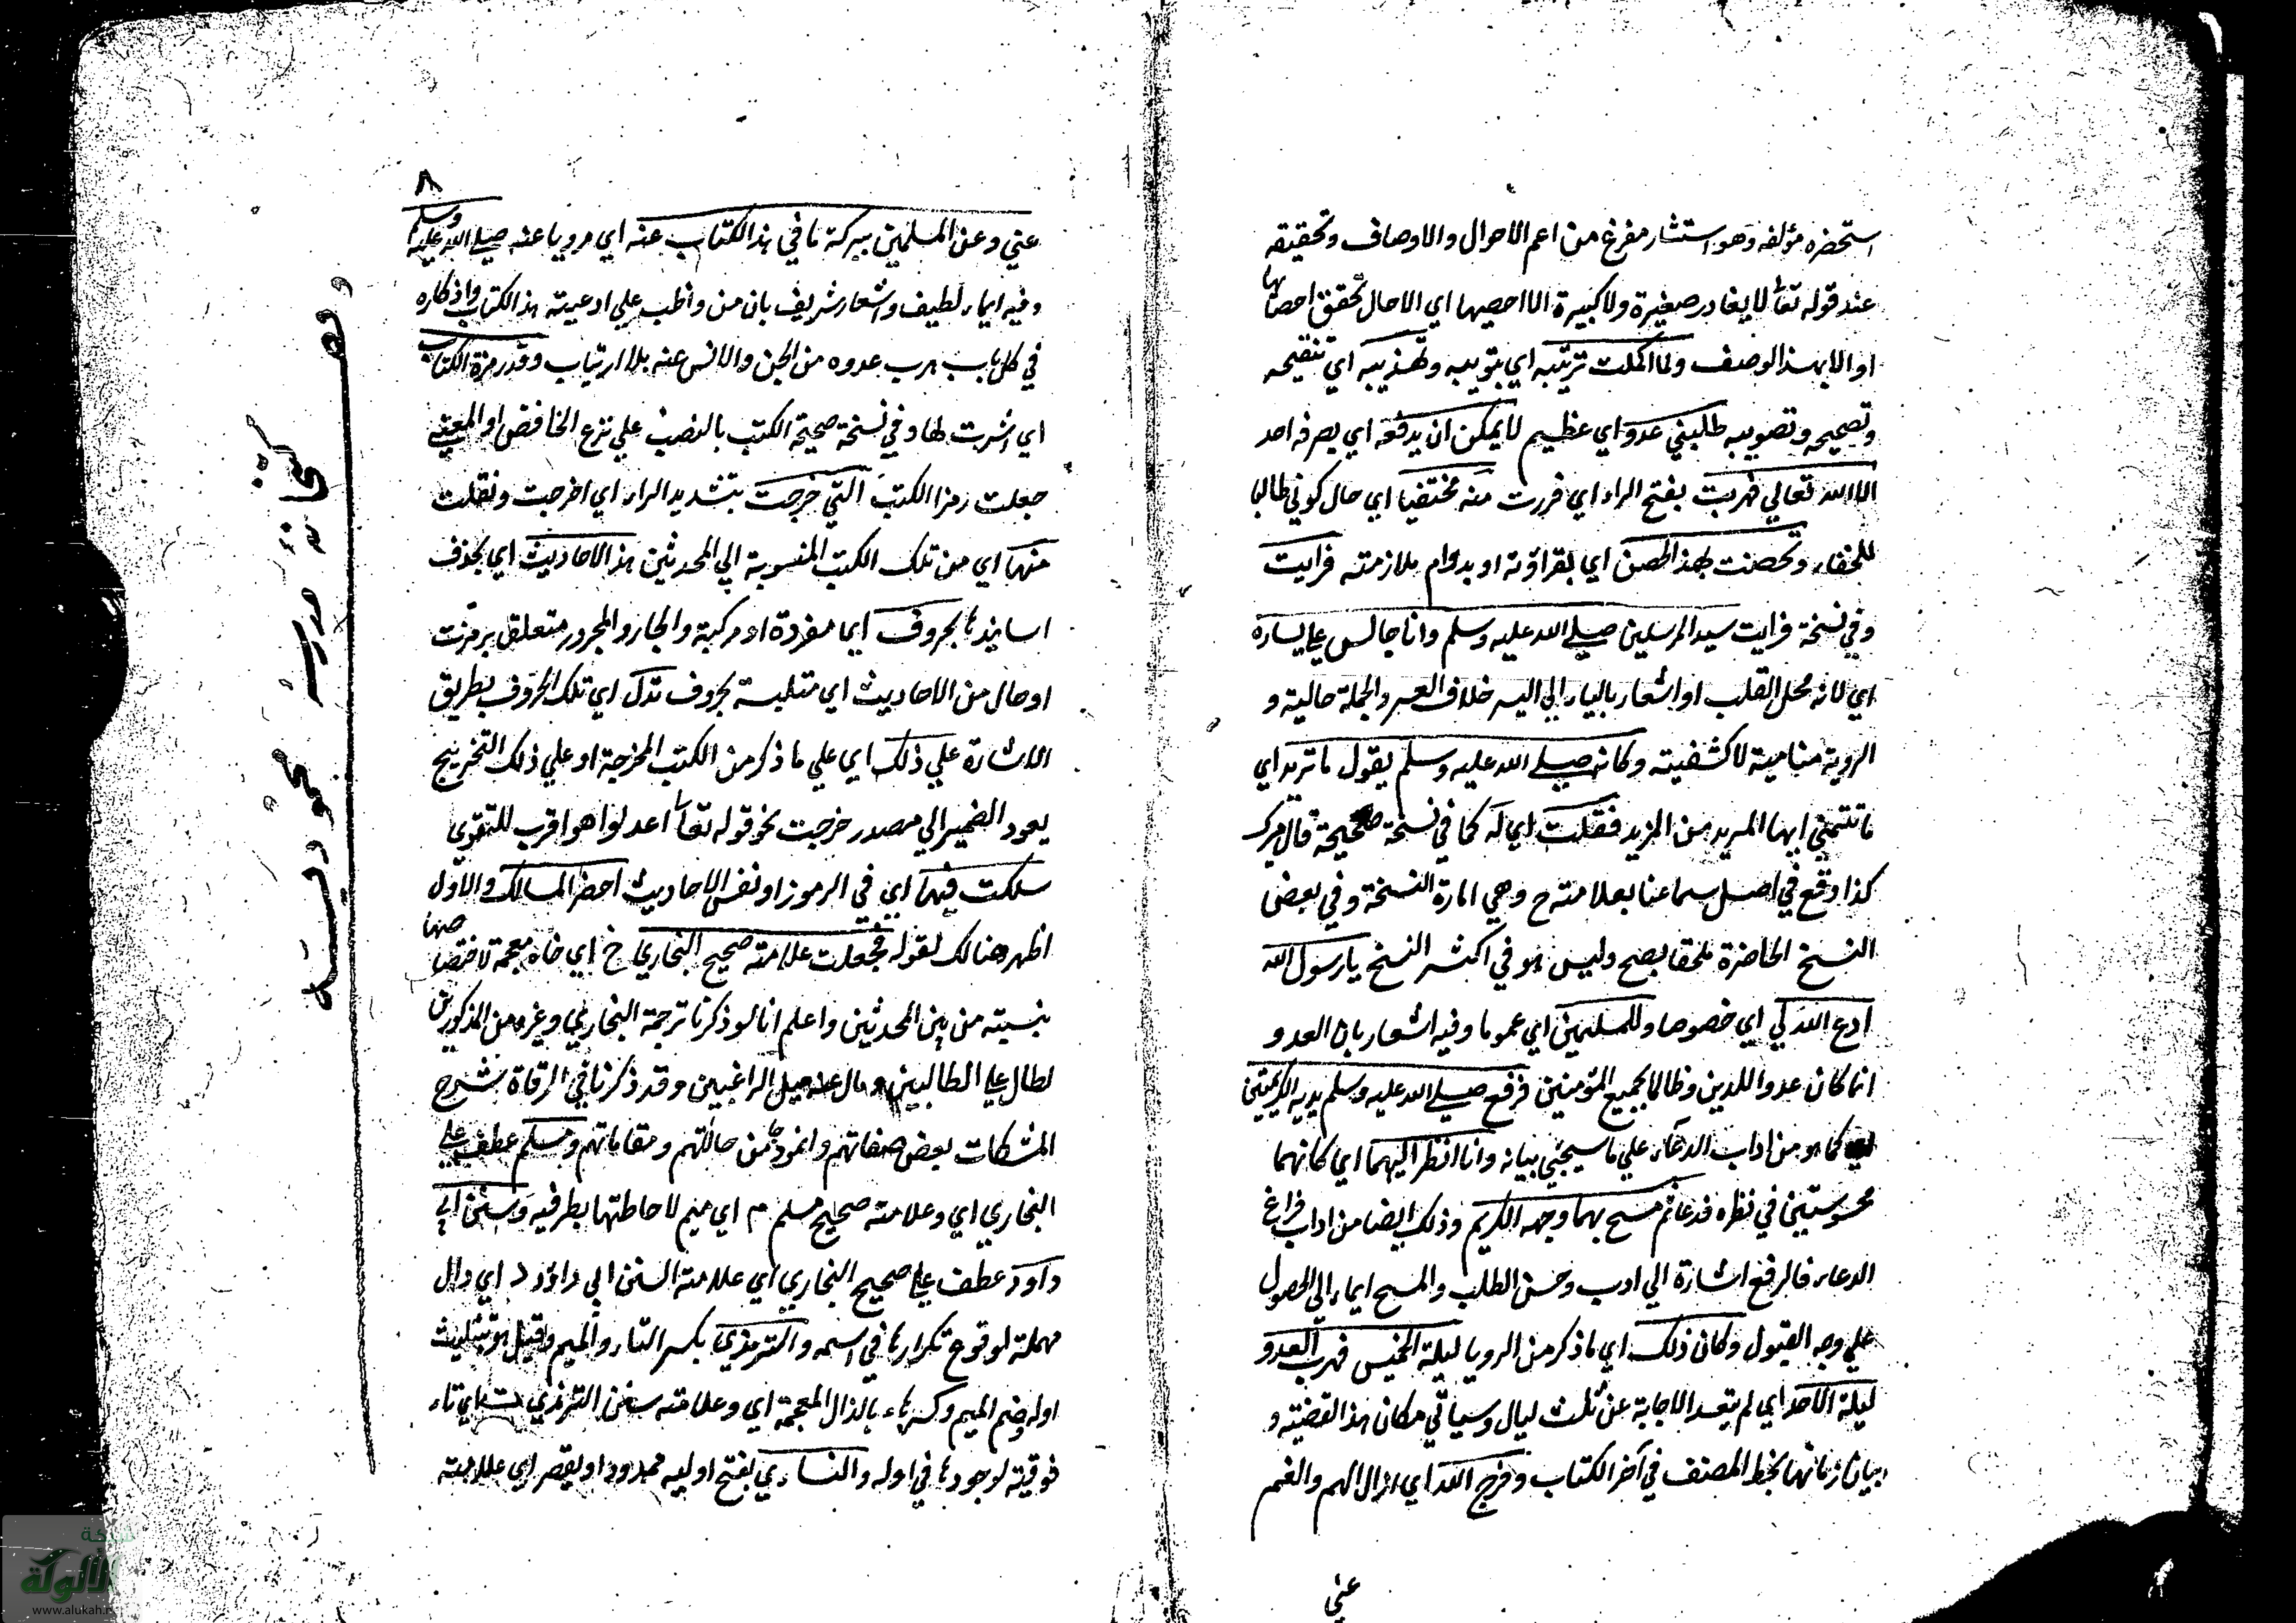 استحضره مؤلفه وهو استثناء مفرغ من اعم الاحوال والاوصاف وتحقيقه
عند قوله تعا لا يغادر صغيرة ولا كبيرة الا احصيها اي الاحال تحقق احصائها
او الا بهذا الوصف ولما اكملت ترتيبه اي تبويبه وتهذيبه اي تنقيحه
وتصحيحه وتصويبه طلبني عدو اي عظيم لا يمكن ان يدفعه اي يصرفه احد
الا الله تعالي فهربت بفتح الراء اي فررت منه مختفيا اي حال كوني طالبا
للخفاء وتحصنت بهذا الحصن اي بقراؤته او بدوام ملازمته فرايت
وفي نسخة فرايت سيد المرسلين صلي الله عليه وسلم وانا جالس علي يساره
اي لانه محل القلب او اشعار باليسار الي اليسر خلاف العسر والجملة حالية و
الروية منامية لا كشفية وكانه صلي الله عليه وسلم يقول ما تريد اي
ما تتمني ايها المريد من المزيد فقلت اي له كما في نسخة صحيحة قال ميرك
كذا وقع في اصل سماعنا بعلامته خ وهي امارة النسخة وفي بعض
النسخ الحاضرة ملحقا بصح وليس هو في اكثر النسخ يا رسول الله
ادع الله لي اي خصوصا وللمسلمين اي عموما وفيه اشعار بان العدو
انما كان عدوا للدين وظالما لجميع المؤمنين فرفع صلي الله عليه وسلم يديه الكريمتين
كما هو من اداب الدعاء علي ما سيجئي بيانه وانا انظر اليهما اي كانهما
محسوستين في نظره فدعا ثم مسح بهما وجهه الكريم وذلك ايضا من اداب فراغ
الدعاء فالرفع اشارة الي ادب وحسن الطلب والمسح ايماء الي الحصول
علي وجه القبول وكان ذلك اي ما ذكر من الرويا ليلة الخميس فهرب العدو
ليلة الاحد اي لم يتعد الاجابة عن ثلث ليال وسياتي مكان هذا القضية و
بيان زمانها بخط المصنف في آخر الكتاب وفرج الله اي ازال الهم والغم
عني
٨
عني وعن المسلمين ببركة ما في هذا الكتاب عنه اي مرويا عنه صلي الله عليه وسلم
وفيه ايماء لطيف واشعار شريف بان من واظب علي ادعية هذا الكتاب واذكاره
في كل باب هرب عدوه من الجن والانس عنه بلا ارتياب وقد رمزة الكتاب
اي اشرت لها وفي نسخة صحيحة الكتب بالنصب علي نزع الخافض او المعني
جعلت رمزا الكتب التي خرجت بتشديد الراء اي اخرجت ونقلت
منها اي من تلك الكتب المنسوبة الي المحدثين هذا الاحاديث اي بحذف
اسانيدها بحروف ايما مفردة او مركبة والجار والمجرور متعلق برمزت
او حال من الاحاديث اي متلبسة بحروف تدل اي تلك الحروف بطريق
الاشارة علي ذلك اي علي ما ذكر من الكتب المخرجة او علي ذلك التخريج
يعود الضمير الي مصدر خرجت نحو قوله تعا اعدلوا هو اقرب للتقوي
سلكت فيها اي في الرموز او نفس الاحاديث اخصر المسالك والاول
اظهر هنالك لقوله فجعلت علامته صحيح البخاري خ اي خاء معجمة لاختصاصها
بنسبته من بين المحدثين واعلم انا لو ذكرنا ترجمة البخاري وغيره من المذكورين
لطال علي الطالبين ومال عنه ميل الراغبين وقد ذكرنا في المرقاة شرح
المشكات بعض صفاتهم وانموذجا من حالتهم ومقاماتهم ومسلم عطف علي
البخاري اي وعلامته صحيح مسلم م اي ميم لاحاطتها بطرفيه وسنن ابي
داود عطف علي صحيح البخاري اي علامته السنن ابي داؤد د اي دال
مهملة لوقوع تكرارها في اسمه والترمذي بكسر التاء والميم وقيل هو بتثليث
اوله وضم الميم وكسرها بالذال المعجمة اي وعلامته سنن الترمذي ت اي تاء
فوقية لوجودها في اوله والنسائي بفتح اوليه ممدودا ويقصر اي علامته
وقف
كتبخانة مدرسه محموديه
شبكة
الألوكة
www.alukah.n